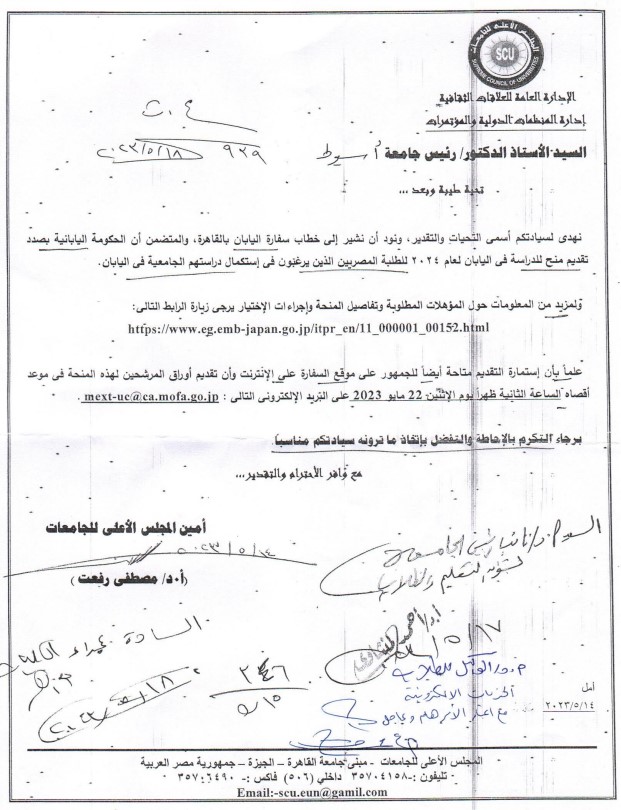 المجلس الأعلى للجامعات
SCU
SUPREME COUNCIL OF UNIVERSITIES
الإدارة العامة للعلاقات الثقافية
إدارة المنظمات الدولية والمؤتمرات
٩٣٩
٢٠٢٣/٥/١٨
السيد الأستاذ الدكتور/ رئيس جامعة أسيوط
تحية طيبة وبعد ...
نهدى لسيادتكم أسمى التحيات والتقدير، ونود أن نشير إلى خطاب سفارة اليابان بالقاهرة، والمتضمن أن الحكومة اليابانية بصدد
تقديم منح للدراسة فى اليابان لعام ٢٠٢٤ للطلبة المصريين الذين يرغبون فى إستكمال دراستهم الجامعية فى اليابان.
ولمزيد من المعلومات حول المؤهلات المطلوبة وتفاصيل المنحة وإجراءات الإختيار يرجى زيارة الرابط التالى:
https://www.eg.emb-japan.go.jp/itpr_en/11_000001_00152.html
علماً بأن إستمارة التقديم متاحة أيضاً للجمهور على موقع السفارة على الإنترنت وأن تقديم أوراق المرشحين لهذه المنحة فى موعد
أقصاه الساعة الثانية ظهراً يوم الإثنين 22 مايو 2023 على البريد الإلكترونى التالى : mext-uc@ca.mofa.go.jp .
برجاء التكرم بالإحاطة والتفضل بإتخاذ ما ترونه سيادتكم مناسباً.
مع وافر الأحترام والتقدير...
أمين المجلس الأعلى للجامعات
٢٠٢٣/٥/١٤
(أ.د/ مصطفى رفعت)
السيد أ.د/ نائب رئيس الجامعة
لشئون التعليم والطلاب
٥/١٧
السادة عمداء الكليات
٢٣٤٦
٥/١٥
٢٠٢٣/٥/١٨
أمل
٢٠٢٣/٥/١٤
المجلس الأعلى للجامعات - مبنى جامعة القاهرة - الجيزة - جمهورية مصر العربية
تليفون :- ٣٥٧٠٤١٥٨ داخلي (٥٠٦) فاكس :- ٣٥٧٠٦٤٩٠
Email:-scu.eun@gamil.com